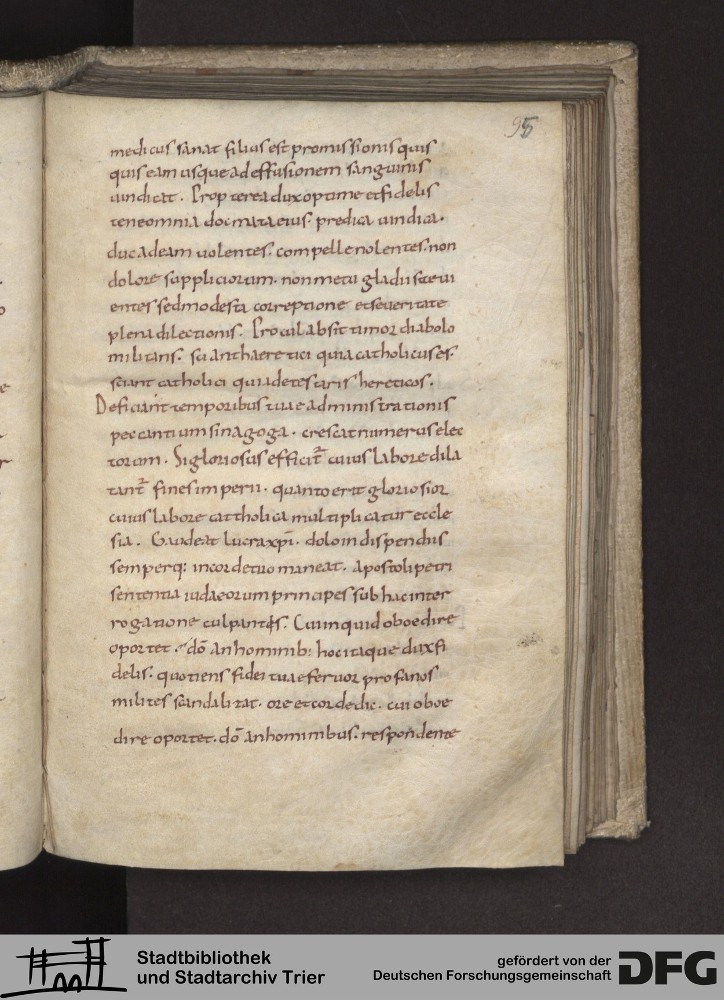 95
medicus sanat filius est promissionis quis
quis eam usque ad effusionem sanguinis
uindicat. Propterea dux optime et fidelis
tene omnia docmata eius. predica uindica.
duc ad eam uolentes. compelle nolentes. non
dolore suppliciorum. non metu gladii sæeui
entes sed modesta correptione et seueritate
plena dilectionis. Procul absit timor diabolo
militans. sciant haeretici quia catholicus es.
sciant catholici quia detestaris hereticos.
Deficiant temporibus tuae administrationis
peccantium sinagoga. crescat numerus elec
torum. Si gloriosus efficit̄ cuius labore dila
tant̄ fines imperii. quanto erit gloriosior
cuius labore cattholica multiplicatur eccle
sia. Gaudeat lucra xp̄i. dolo in dispendiis
semperq: in corde tuo maneat. apostoli petri
sententia iudaeorum principes sub hac inter
rogatione culpantis. Cuinquid oboedire
oportet. dō an hominib: hoc itaque dux fi
delis. quotiens fidei tuae feruor profanos
milites scandalizat. ore et corde dic. cui oboe
dire oportet. dō an hominibus. respondente
Stadtbibliothek
und Stadtarchiv Trier
gefördert von der
Deutschen Forschungsgemeinschaft
DFG